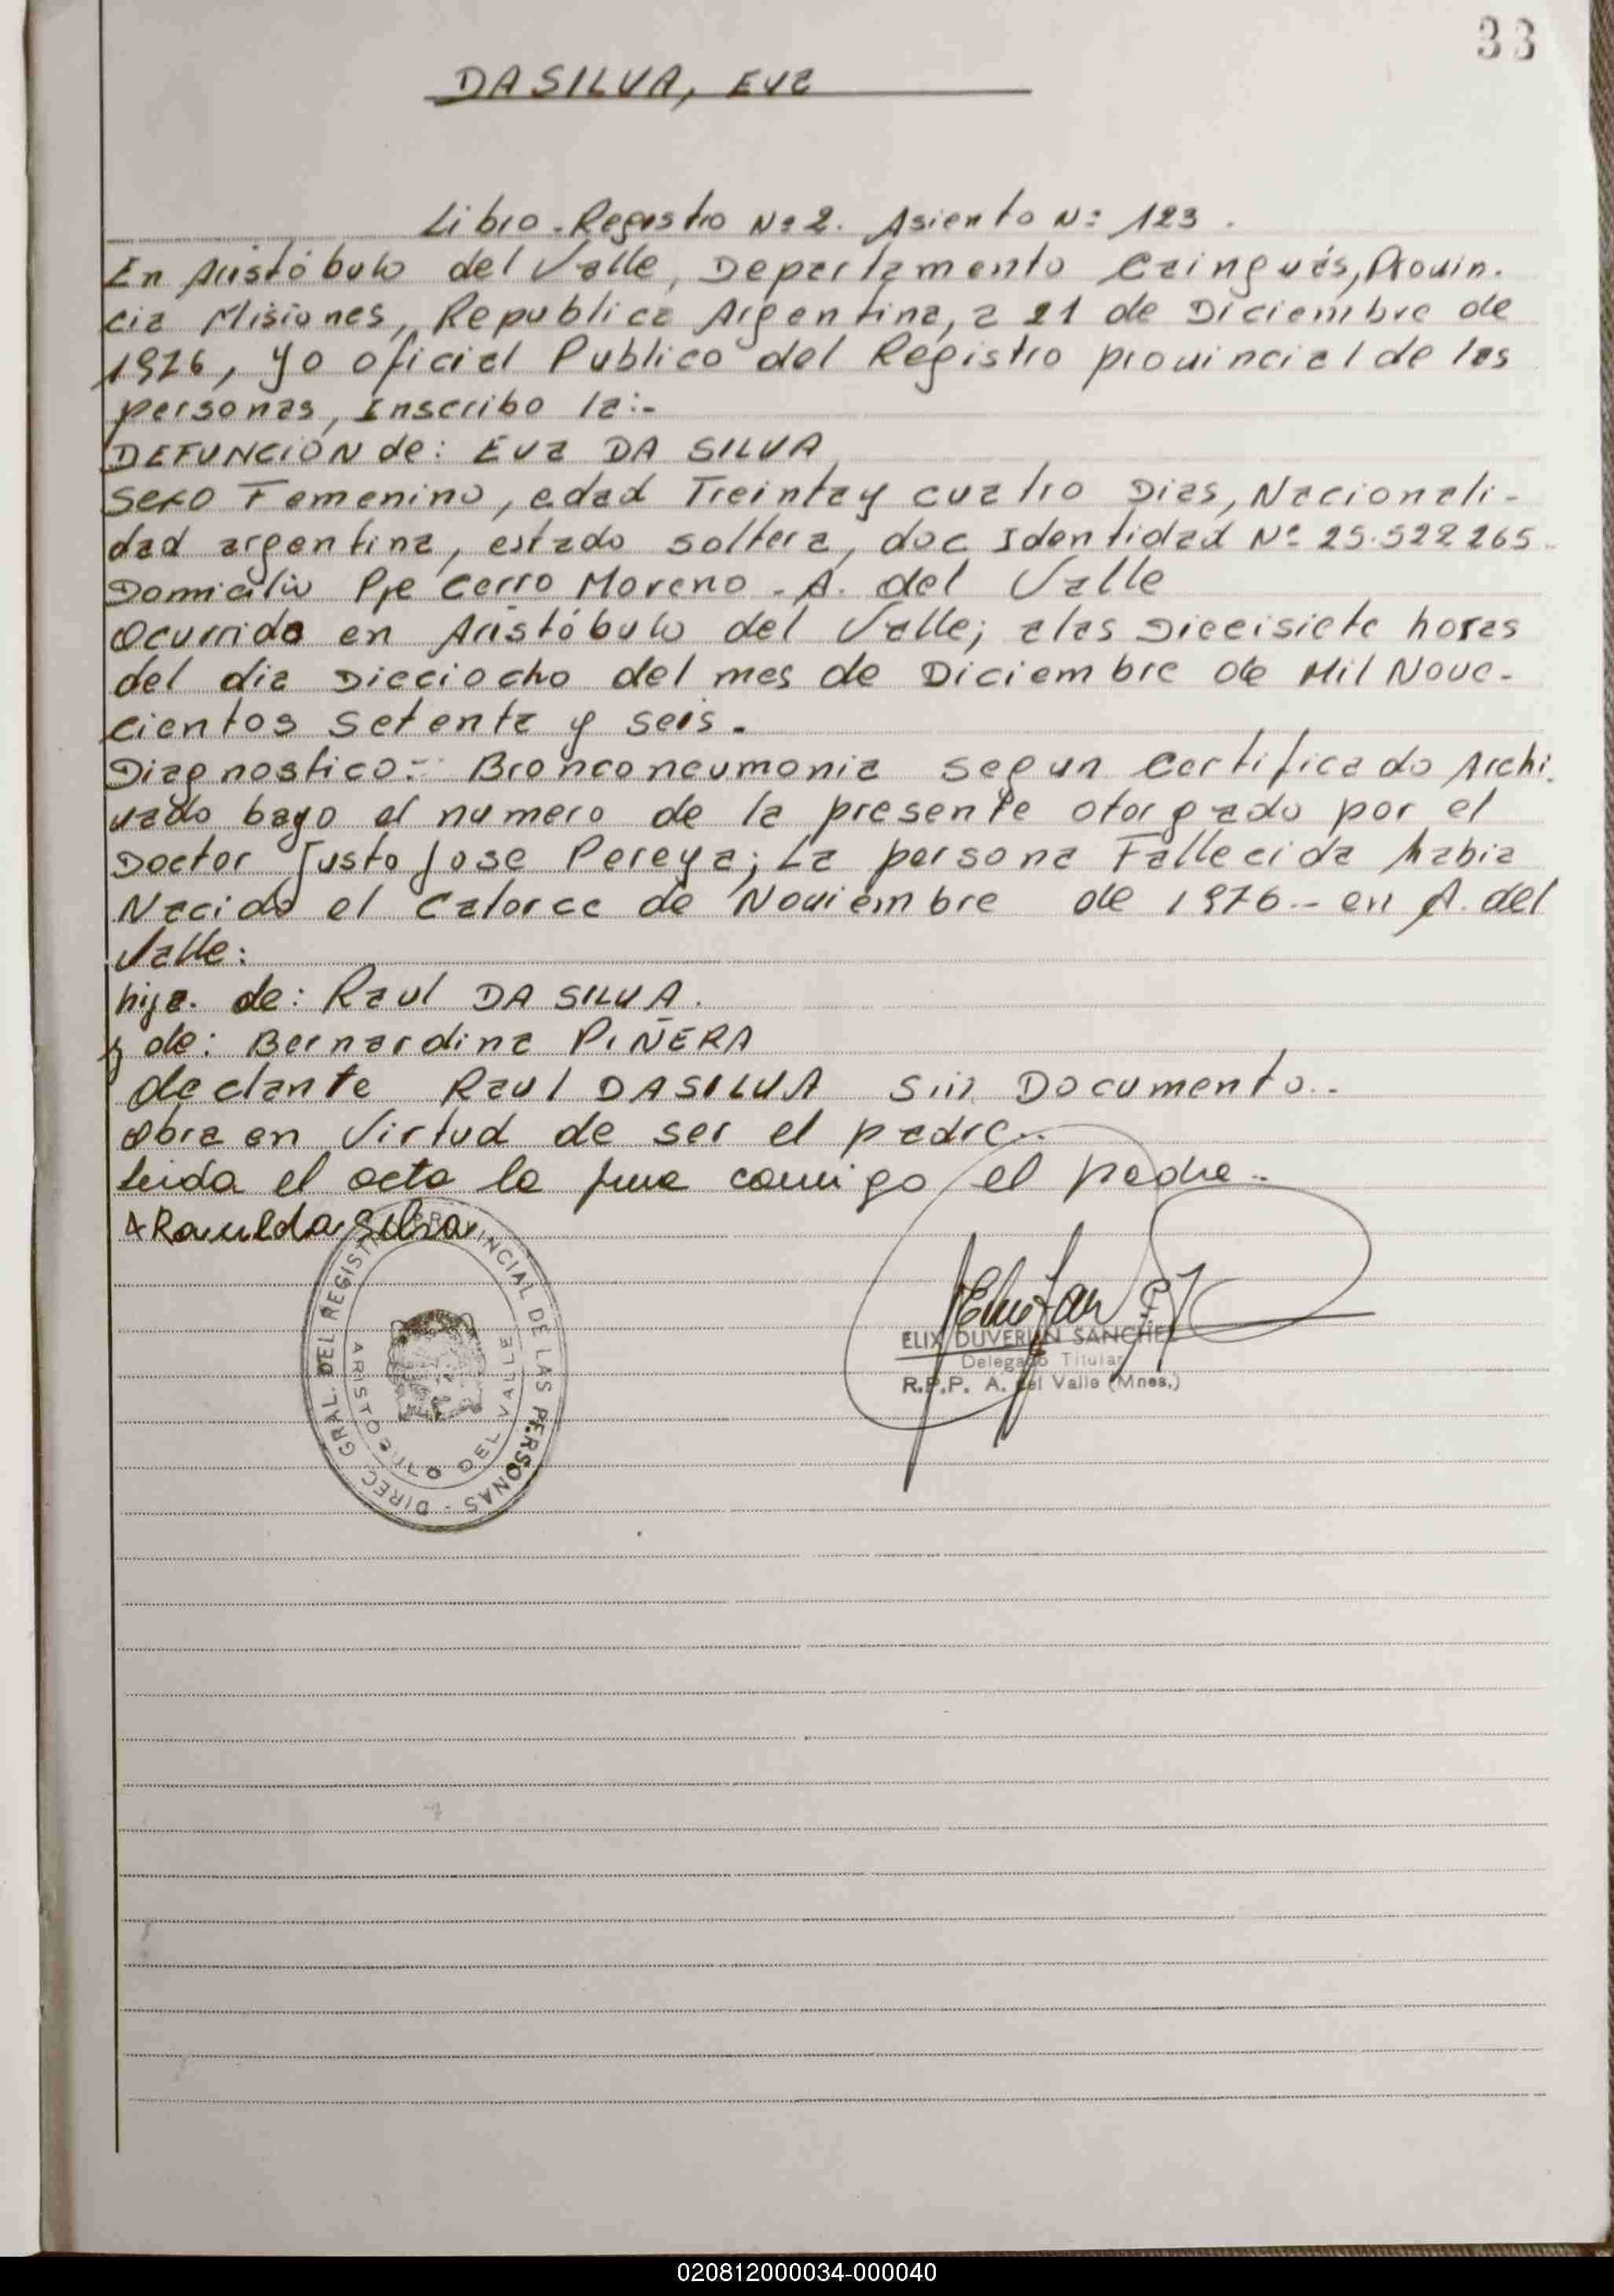 33
DASILVA, Eva
Libro-Registro Nº 2. Asiento Nº 123.
En Aristóbulo del Valle, Departamento Cainguás, Provin-
cia Misiones, Republica Argentina, a 21 de Diciembre de
1976, yo oficial Publico del Registro provincial de las
personas, Inscribo la:-
DEFUNCION de: Eva DA SILVA
Sexo Femenino, edad Treinta y cuatro Dias, Nacionali-
dad argentina, estado soltera, doc Identidad Nº 25.522265.
Domicilio Pje Cerro Moreno - A. del Valle
Ocurrido en Aristóbulo del Valle; a las Diecisiete horas
del dia Dieciocho del mes de Diciembre de Mil Nove-
cientos setenta y seis.
Diagnostico:- Bronconeumonia segun Certificado Archi-
vado bayo el numero de la presente otorgado por el
Doctor Justo Jose Pereya; La persona Fallecida habia
Nacido el Catorce de Noviembre de 1976.- en A. del
Valle:
hija. de: Raul DA SILVA.
y de: Bernardina PIÑERA
declante Raul DASILVA Sin Documento..
Obra en Virtud de ser el padre..
leida el acta la firma comigo el padre..
Raul da Silva
DIREC. GRAL. DEL REGISTRO PROVINCIAL DE LAS PERSONAS -
ARISTOBULO DEL VALLE
ELIX DUVERLIN SANCHEZ
Delegado Titular
R.P.P. A. del Valle (Mnes.)
020812000034-000040